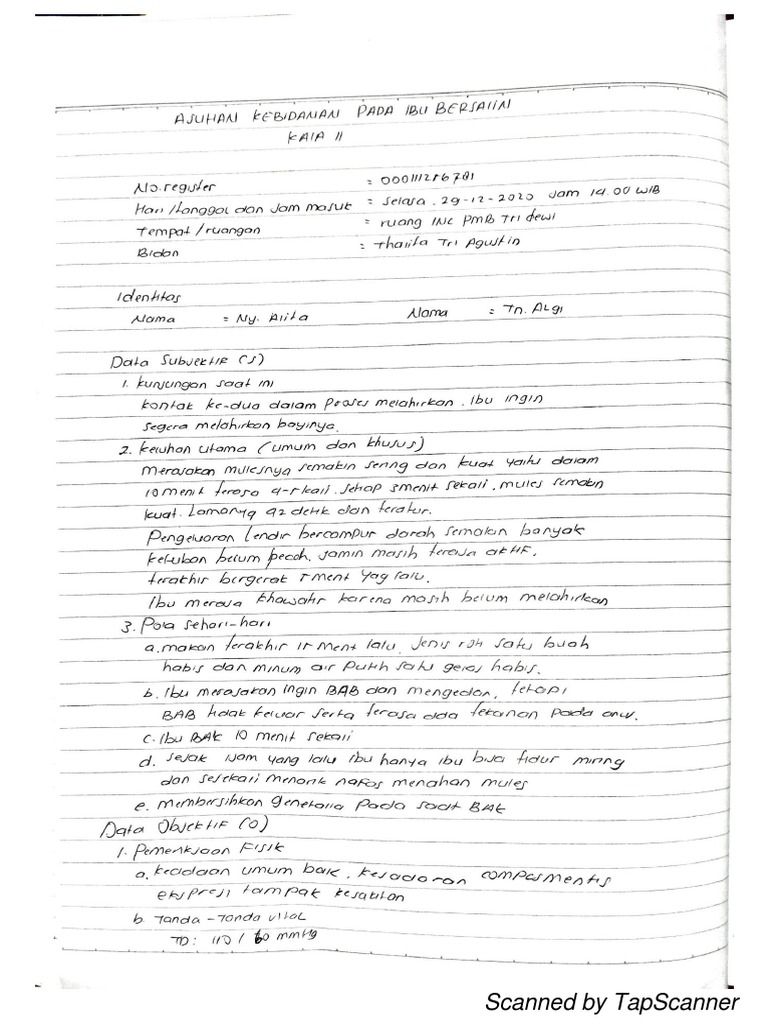 ASUHAN KEBIDANAN PADA IBU BERSALIN
KALA II
No. register = 000111286781
Hari /tanggal dan Jam masuk = Selasa. 29-12-2020 Jam 14.00 WIB
Tempat / ruangan = ruang INC PMB Tri dewi
Bidan = Thalita Tri Agustin
Identitas
Nama = Ny. Alita Nama = Tn. ALgi
Data Subjektif (S)
1. kunjungan saat ini
kontak ke-dua dalam proses melahirkan. Ibu ingin
segera melahirkan bayinya.
2. keluhan utama (umum dan khusus)
merasakan mulesnya semakin sering dan kuat yaitu dalam
10 menit terasa 4-5 kali. setiap 3menit sekali, mules semakin
kuat. Lamanya 42 detik dan teratur.
Pengeluaran lendir bercampur darah semakin banyak
ketuban belum pecah, janin masih terasa aktif.
terakhir bergerak 5 menit yag lalu.
Ibu merasa khawatir karena masih belum melahirkan
3. Pola sehari-hari
a. makan terakhir 15 menit lalu, Jenis roti satu buah
habis dan minum air putih satu gelas habis.
b. Ibu merasakan ingin BAB dan mengedan, tetapi
BAB tidak keluar serta terasa ada tekanan pada anus.
c. Ibu BAK 10 menit sekali
d. sejak 1jam yang lalu ibu hanya ibu bisa tidur miring
dan sesekali menarik nafas menahan mules
e. membersihkan genetalia pada saat BAK
Data Objektif (O)
1. Pemeriksaan Fisik
a. keadaan umum baik, kesadaran composmentis
ekspresi tampak kesakitan
b. Tanda -Tanda vital
TD: 110 / 60 mmHg
Scanned by TapScanner